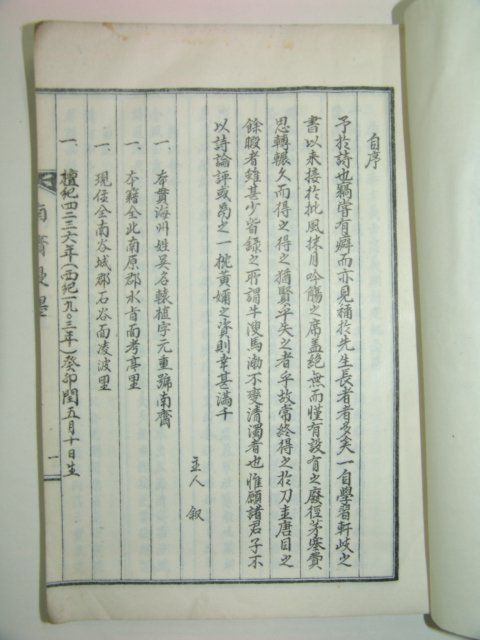 自序
予於詩也竊嘗有癖而亦見補於先生長者者多矣一自學習軒岐之
書以來接於批風抹月吟觴之席盖絶無而僅有設有之廢徑茅塞費
思轉輾久而得之得之猶賢乎失之者乎故常終得之於刀圭唐目之
餘暇者雖甚少皆錄之所謂牛溲馬渤不變清濁者也惟願諸君子不
以詩論評或爲之一枕黃嬭之資則幸甚滿千
主人 叙
一、本貫海州姓吳名 植字元重號南齋
一、本籍全北南原郡水旨面考亭里
一、現住全南谷城郡石谷面凌波里
一、檀紀四二三六年(西紀一九〇三年)癸卯閏五月十日生
南齋漫
一